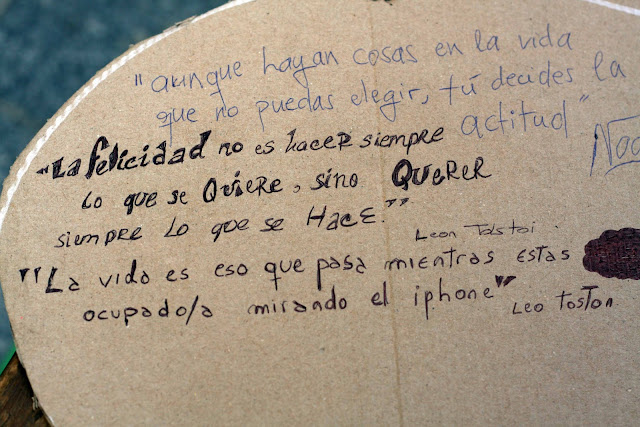 "aunque hayan cosas en la vida
que no puedas elegir, tú decides la
actitud"
"La felicidad no es hacer siempre
lo que se Quiere, sino QUERER
siempre lo que se HACE."
Leon Tolstoi
"La vida es eso que pasa mientras estas
ocupado/a mirando el iphone"
Leo Toston